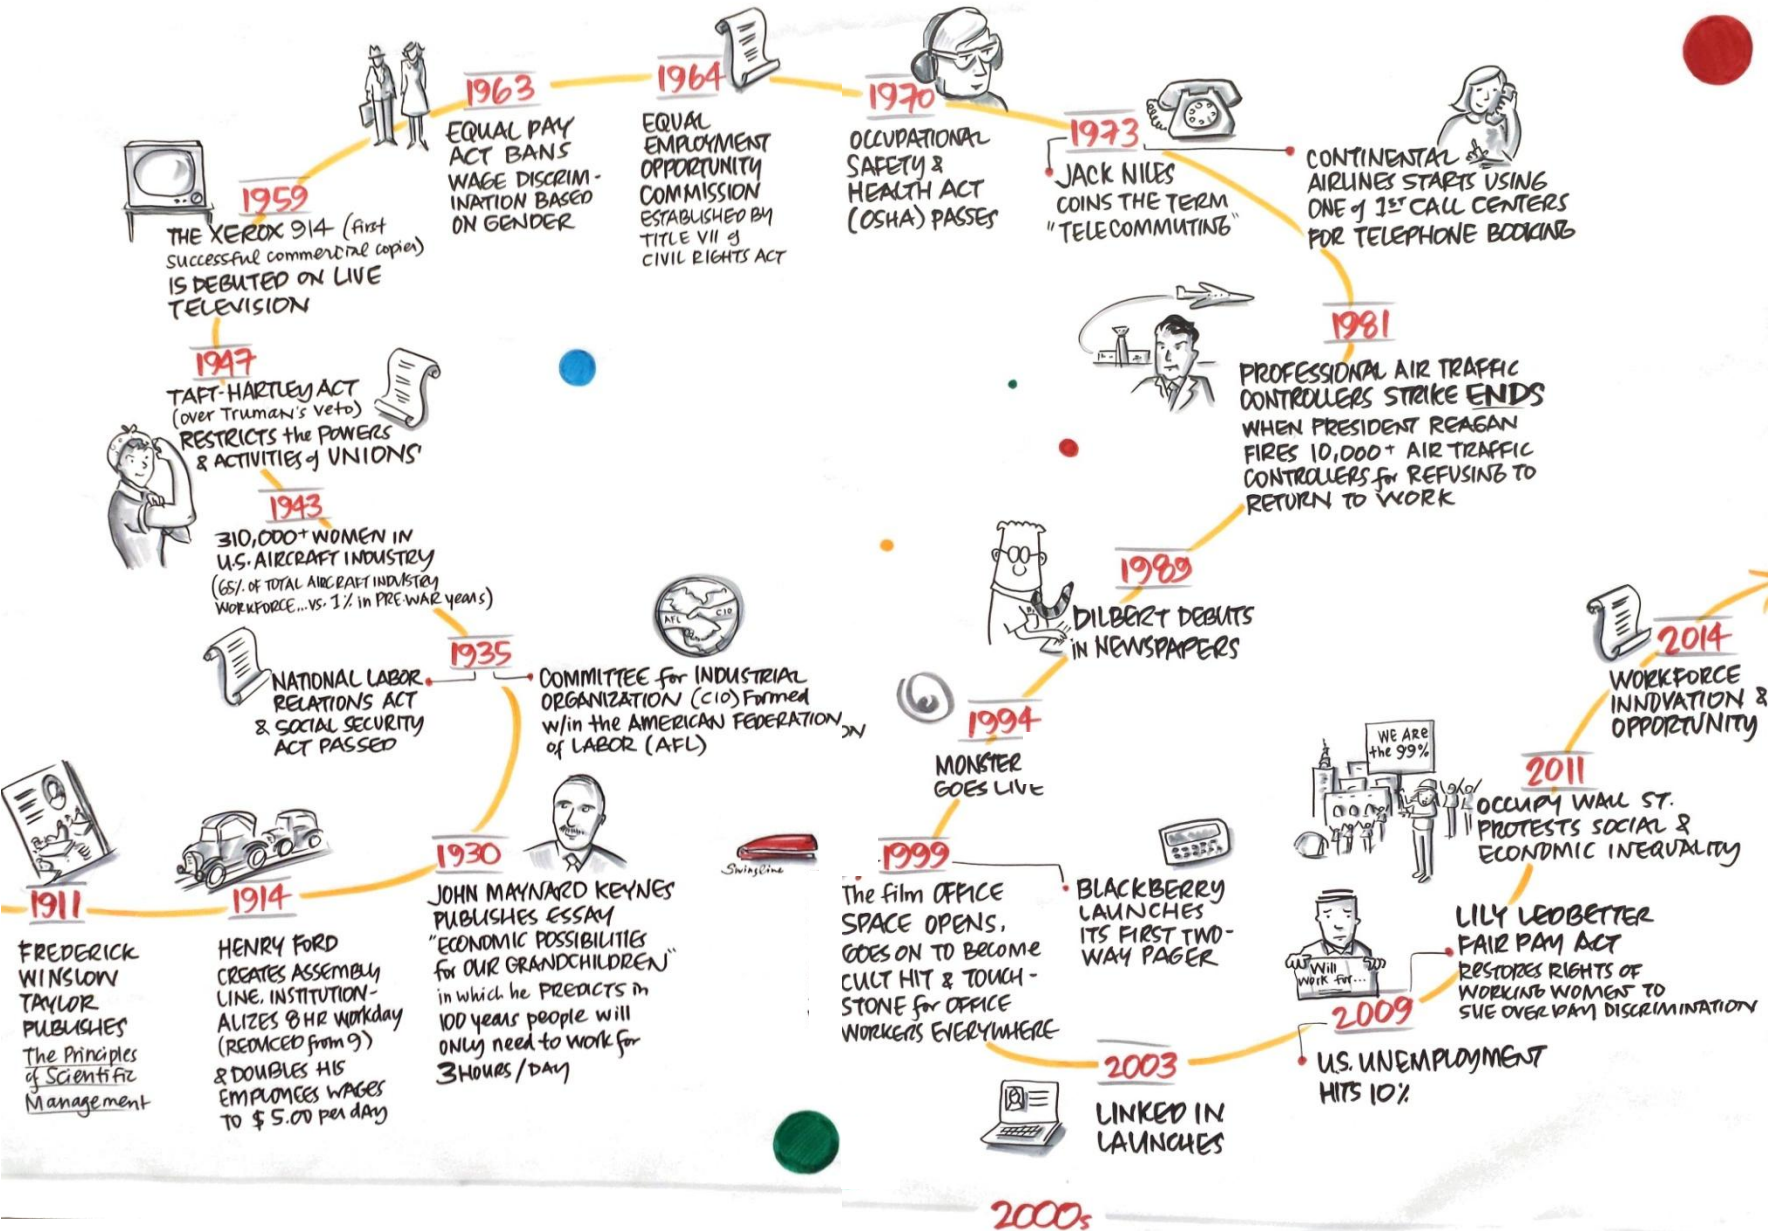 1911
FREDERICK
WINSLOW
TAYLOR
PUBLISHES
The Principles
of Scientific
Management
1914
HENRY FORD
CREATES ASSEMBLY
LINE, INSTITUTION-
ALIZES 8HR workday
(REDUCED from 9)
& DOUBLES HIS
EMPLOYEES WAGES
TO $5.00 per day
1930
JOHN MAYNARD KEYNES
PUBLISHES ESSAY
"ECONOMIC POSSIBILITIES
for OUR GRANDCHILDREN"
in which he PREDICTS in
100 years people will
ONLY need to work for
3 HOURS/DAY
1935
NATIONAL LABOR
RELATIONS ACT
& SOCIAL SECURITY
ACT PASSED
AFL CIO
COMMITTEE for INDUSTRIAL
ORGANIZATION (CIO) Formed
w/in the AMERICAN FEDERATION
of LABOR (AFL)
ON
1943
310,000+ WOMEN IN
U.S. AIRCRAFT INDUSTRY
(65% OF TOTAL AIRCRAFT INDUSTRY
WORKFORCE...VS. 1% in PRE-WAR years)
1947
TAFT-HARTLEY ACT
(over Truman's veto)
RESTRICTS the POWERS
& ACTIVITIES of UNIONS
1959
THE XEROX 914 (first
successful commercial copier)
IS DEBUTED ON LIVE
TELEVISION
1963
EQUAL PAY
ACT BANS
WAGE DISCRIM-
INATION BASED
ON GENDER
1964
EQUAL
EMPLOYMENT
OPPORTUNITY
COMMISSION
ESTABLISHED BY
TITLE VII of
CIVIL RIGHTS ACT
1970
OCCUPATIONAL
SAFETY &
HEALTH ACT
(OSHA) PASSES
1973
JACK NILES
COINS THE TERM
"TELECOMMUTING"
CONTINENTAL
AIRLINES STARTS USING
ONE of 1ST CALL CENTERS
FOR TELEPHONE BOOKING
1981
PROFESSIONAL AIR TRAFFIC
CONTROLLERS STRIKE ENDS
WHEN PRESIDENT REAGAN
FIRES 10,000+ AIR TRAFFIC
CONTROLLERS for REFUSING TO
RETURN TO WORK
1989
DILBERT DEBUTS
in NEWSPAPERS
1994
MONSTER
GOES LIVE
Swingline
1999
The film OFFICE
SPACE OPENS,
GOES ON TO BECOME
CULT HIT & TOUCH-
STONE for OFFICE
WORKERS EVERYWHERE
BLACKBERRY
LAUNCHES
ITS FIRST TWO-
WAY PAGER
2003
LINKED IN
LAUNCHES
2009
Will
work for...
LILY LEDBETTER
FAIR PAY ACT
RESTORES RIGHTS OF
WORKING WOMEN TO
SUE OVER PAY DISCRIMINATION
U.S. UNEMPLOYMENT
HITS 10%
2011
WE ARE
the 99%
OCCUPY WALL ST.
PROTESTS SOCIAL &
ECONOMIC INEQUALITY
2014
WORKFORCE
INNOVATION &
OPPORTUNITY
2000s